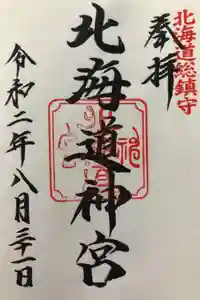 北海道総鎮守
奉拝
北海道神宮
令和二年八月三十一日